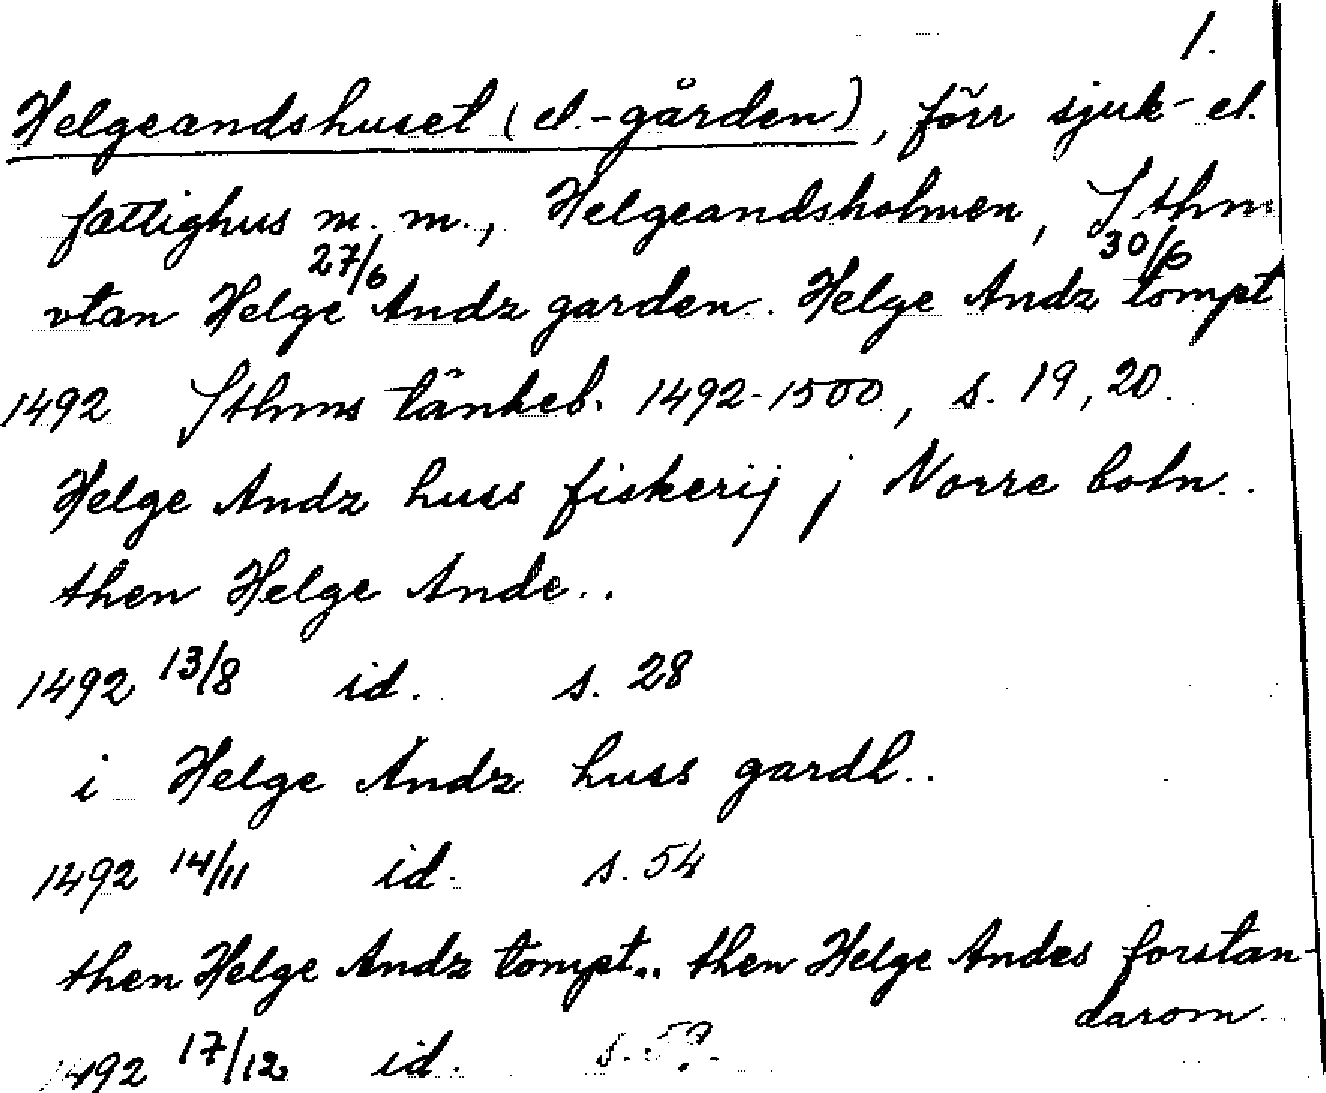 1.
Helgeandshuset (el. -gården), förr sjuk- el.
fattighus m. m., Helgeandsholmen, Sthm
27/6 30/6
vtan Helge Andz garden.. Helge Andz tompt
1492 Sthms tänkeb. 1492-1500, s. 19, 20.
Helge Andz huss fiskerij j Norre botn..
then Helge Ande..
1492 13/8 id. s. 28
i Helge Andz huss gardh..
1492 14/11 id. s. 54
then Helge Andz tompt.. then Helge Andes forstan-
darom
1492 17/12 id. s.